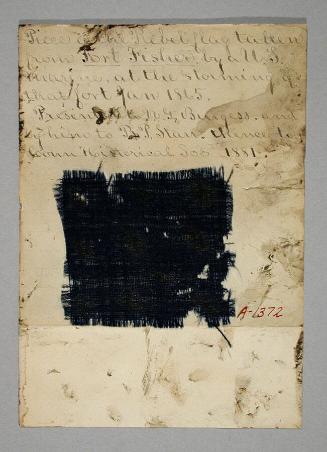 Piece of the Rebel flag taken
from Fort Fisher, by a U.S.
marine, at the storming of
that fort Jan 1865.
Presented D. Burgess, and
to
Conn Historical Soc. 1881.
A-1372